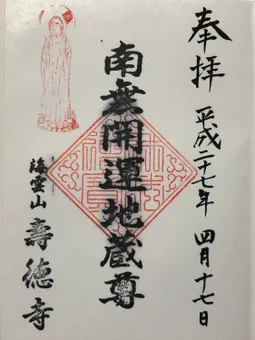 奉拝
平成二十七年 四月十七日
南無開運地蔵尊
海雲山 壽徳寺